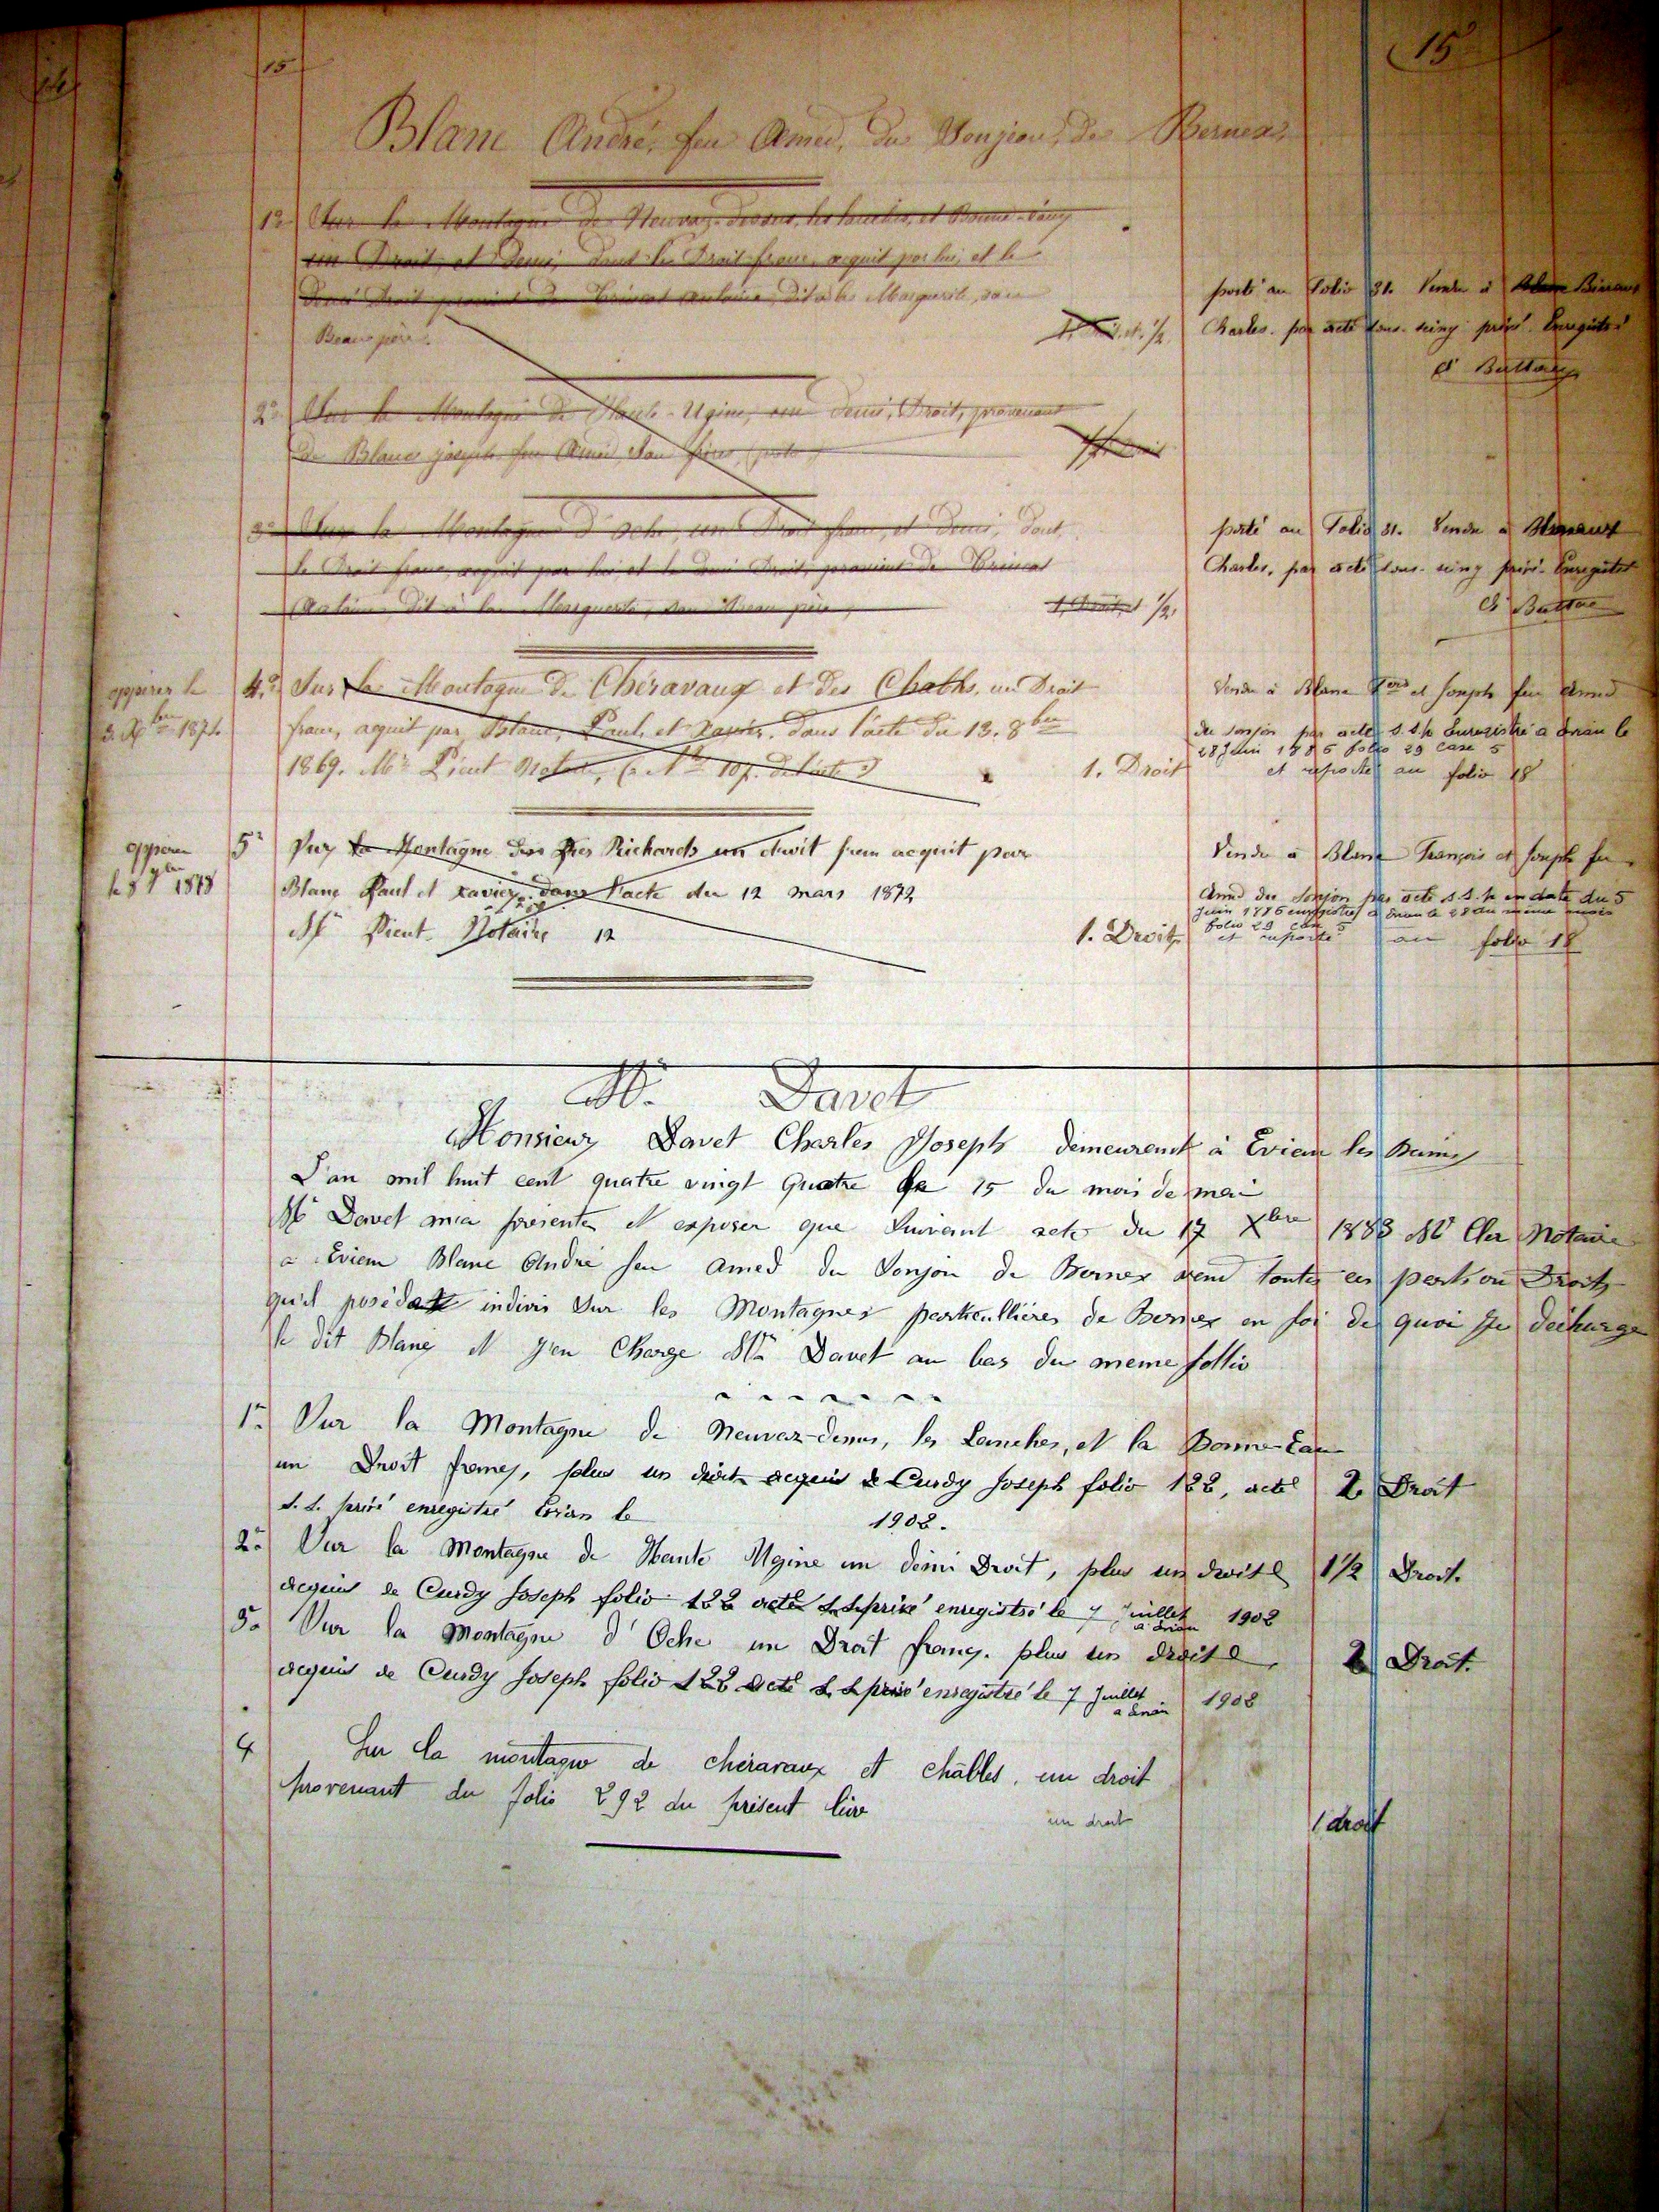 15
15
Blanc André, feu Amed, du Vonjon, de Bernex,
1° Sur la Montagne de Neuvaz-dessus, les lanches, et Bonne-Eau,
un Droit, et Demi, dont le Droit franc, acquit par lui, et le
Demi Droit provient de Trincat Antoine, Dit à la Marguerite, son
Beau père.
1. Droit et 1/2
porté au Folio 31. Vendu à
Charles. par acte sous-seing privé. Enregistré
2° Sur la Montagne de Haute-Ugine, un demi, Droit, provenant
de Blanc joseph feu Amed, son frère,
1/2 Droit
3° Sur la Montagne d'Oche, un Droit franc, et Demi, dont,
le Droit franc, acquit par lui et le demi Droit, provient de Trincat
Antoine Dit à la Marguerite, son Beau père,
1. Droit et 1/2
porté au Folio 31. Vendu à
Charles, par acte sous-seing privé. Enregistré
4° Sur la Montagne de Chéravaux et des Chables, un Droit
franc, acquit par Blanc, Paul, et Xavier. Dans l'acte du 13. 8bre
1869. Me Pient Notaire,
1. Droit
Vendu à Blanc Fois et Joseph feu Amed
du Vonjon par acte s. s. p. Enregistré à Evian le
28 Juin 1886 folio 29 case 5
et reporté au folio 18
5° Sur la Montagne des Prés Richards un droit franc acquit par
le 8 7bre 1878
Blanc Paul et Xavier dans l'acte du 12 mars 1872
Me Pient Notaire 12
1. Droit
Vendu à Blanc François et Joseph feu
Amed du Vonjon par acte s. s. p. en date du 5
Juin 1886 enregistré à Evian le 28 du même mois
folio 29 case 5
et reporté au folio 18
Mr. Davet
Monsieur Davet Charles Joseph demeurent à Evian les Bains
L'an mil huit cent quatre vingt Quatre le 15 du mois de mai
Mr Davet m'a presenter et exposer que Suivant acte du 17 Xbre 1883 Me Notaire
a Eviem Blanc André feu Amed du Vonjon de Bernex vend toutes ces parts ou Droits
qu'il posédait indivis Sur les Montagnes particullières de Bernex en foi de quoi Je décharge
le dit Blanc et J'en Charge Mr Davet au bas du meme follio
1° Sur la Montagne de Neuvaz-dessus, les Lanches, et la Bonne-Eau
un Droit franc, plus un droit acquis de Curdy Joseph folio 122, acte 2 Droit
s. s. privé enregistré Evian le 1908.
2° Sur la Montagne de Haute Ugine un demi Droit, plus un droit 1 1/2 Droit.
acquis de Curdy Joseph folio 122 acte s. s. privé enregistré le 7 Juillet 1908
à Evian
3° Sur la Montagne d'Oche un Droit franc. plus un droit 2 Droit.
acquis de Curdy Joseph folio 122 acte s. s. privé enregistré le 7 Juillet 1908
à Evian
4 Sur la montagne de chéravaux et châbles, un droit
provenant du folio 292 du présent livre
un droit
1 droit